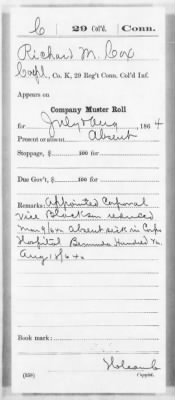 C 29 Col'd. Conn.
Richard M. Cox
Corpl., Co. K, 29 Reg't Conn. Col'd Inf.
Appears on
Company Muster Roll
for July & Aug, 1864
Present or absent Absent
Stoppage, $ 100 for
Due Gov't, $ 100 for
Remarks: Appointed Corporal
vice Blackson reduced
Absent sick in Corps
Hospital Bermuda Hundred Va.
Aug 18/64.
Book mark:
Holcomb
(358) Copyist.